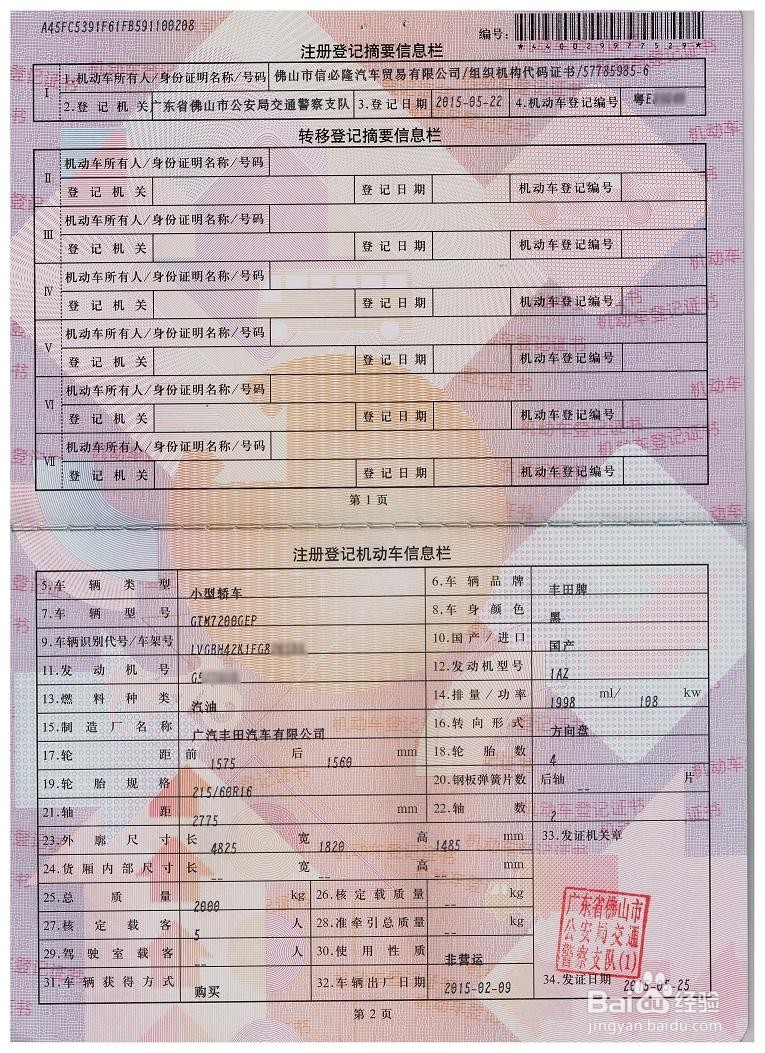 A45FC5391F61FB591100208
编号:
*4400297775 29*
注册登记摘要信息栏
I 1.机动车所有人/身份证明名称/号码 佛山市信必隆汽车贸易有限公司/组织机构代码证书/57785985-6
2.登记机关 广东省佛山市公安局交通警察支队 3.登记日期 2015-05-22 4.机动车登记编号 粤E
转移登记摘要信息栏
II 机动车所有人/身份证明名称/号码
登记机关 登记日期 机动车登记编号
III 机动车所有人/身份证明名称/号码
登记机关 登记日期 机动车登记编号
IV 机动车所有人/身份证明名称/号码
登记机关 登记日期 机动车登记编号
V 机动车所有人/身份证明名称/号码
登记机关 登记日期 机动车登记编号
VI 机动车所有人/身份证明名称/号码
登记机关 登记日期 机动车登记编号
VII 机动车所有人/身份证明名称/号码
登记机关 登记日期 机动车登记编号
第 1 页
注册登记机动车信息栏
5.车辆类型 小型轿车 6.车辆品牌 丰田牌
7.车辆型号 GTM7200GEP 8.车身颜色 黑
9.车辆识别代号/车架号 LVGBH42K1FG8 10.国产/进口 国产
11.发动机号 G5 12.发动机型号 1AZ
13.燃料种类 汽油 14.排量/功率 1998 ml/ 108 kw
15.制造厂名称 广汽丰田汽车有限公司 16.转向形式 方向盘
17.轮距 前 1575 后 1560 mm 18.轮胎数 4
19.轮胎规格 215/60R16 20.钢板弹簧片数 后轴 -- 片
21.轴距 2775 mm 22.轴数 2
23.外廓尺寸 长 4825 宽 1820 高 1485 mm 33.发证机关章
24.货厢内部尺寸 长 -- 宽 -- 高 -- mm
25.总质量 2000 kg 26.核定载质量 -- kg
27.核定载客 5 人 28.准牵引总质量 -- kg
29.驾驶室载客 -- 人 30.使用性质 非营运
31.车辆获得方式 购买 32.车辆出厂日期 2015-02-09 34.发证日期 2015-05-25
广东省佛山市
公安局交通
警察支队(1)
第 2 页
Baidu 经验
jingyan.baidu.com